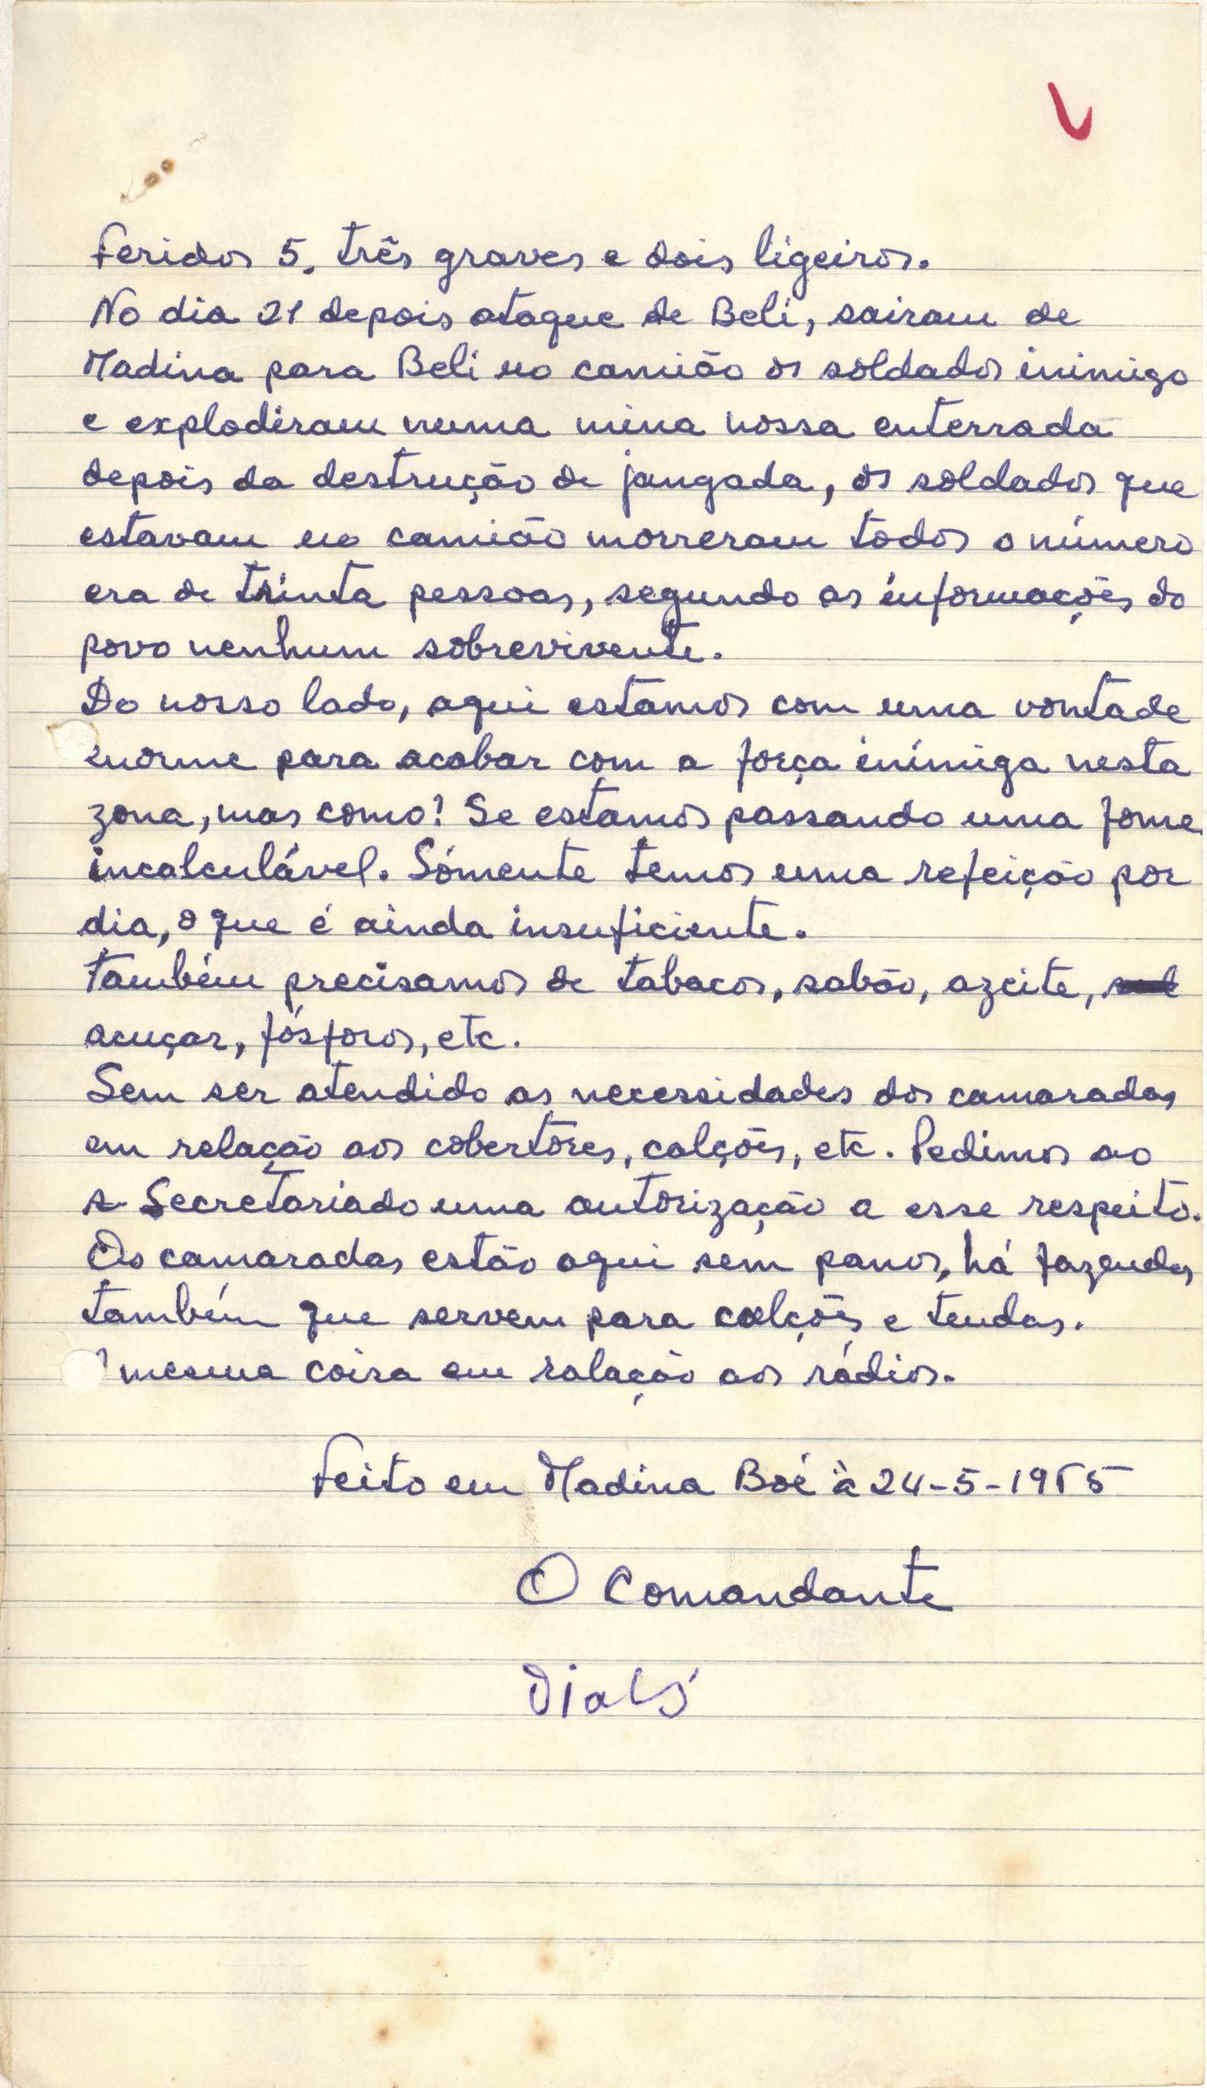 Feridos 5, três graves e dois ligeiros.
No dia 21 depois ataque de Beli, sairam de
Madina para Beli no camião os soldados inimigo
e explodiram numa mina nossa enterrada
depois da destruição de jangada, os soldados que
estavam no camião morreram todos o número
era de trinta pessoas, segundo as informações do
povo nenhum sobrevivente.
Do nosso lado, aqui estamos com uma vontade
enorme para acabar com a força inimiga nesta
zona, mas como! Se estamos passando uma fome
incalculável. Sómente temos uma refeição por
dia, o que é ainda insuficiente.
Também precisamos de tabacos, sabão, azeite,
acuçar, fósforos, etc.
Sem ser atendido as necessidades dos camaradas
em relação aos cobertores, calções, etc. Pedimos ao
s. Secretariado uma autorização a esse respeito.
Os camaradas estão aqui sem panos, há fazendas
também que servem para calções e tendas.
mesma coisa em ralação aos rádios.
Feito em Madina Boé à 24-5-1965
O Comandante